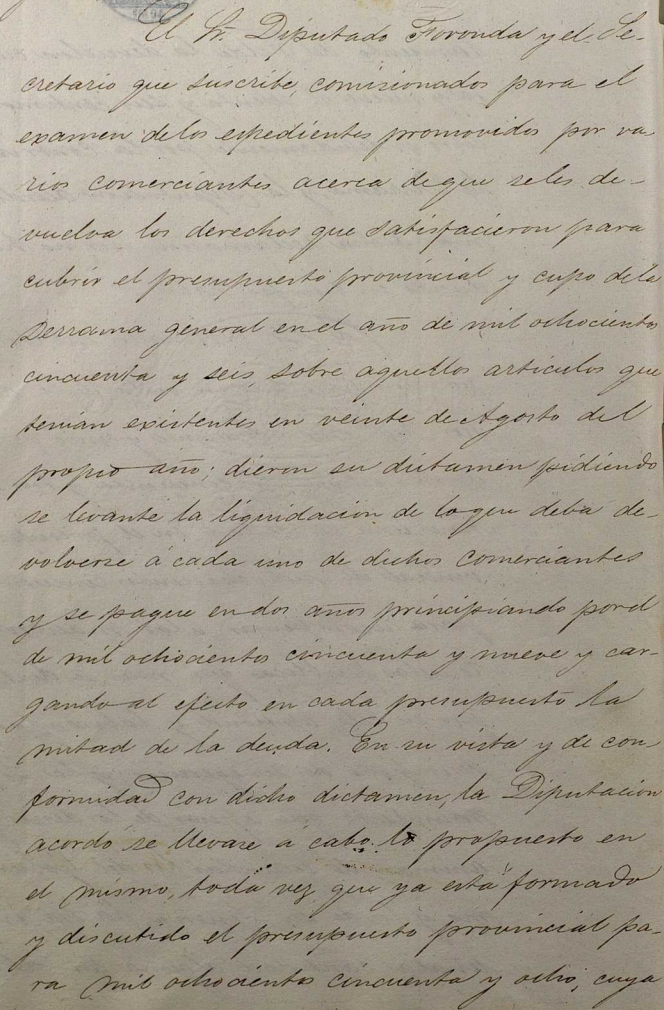 El Sr. Diputado Foronda y el Se-
cretario que suscribe, comisionados para el
examen de los espedientes promovidos por va-
rios comerciantes acerca de que se les de-
vuelva los derechos que satisfacieron para
cubrir el presupuesto provincial y cupo de la
Derrama general en el año de mil ochocientos
cincuenta y seis, sobre aquellos articulos que
tenian existentes en veinte de Agosto del
propio año; dieron su dictamen pidiendo
se levante la liquidación de lo que deba de-
volverse á cada uno de dichos comerciantes
y se pague en dos años principiando por el
de mil ochocientos cincuenta y nueve y car-
gando al efecto en cada presupuesto la
mitad de la deuda. En su vista y de con-
formidad con dicho dictamen, la Diputación
acordó se llevare á cabo lo propuesto en
el mismo, toda vez que ya está formado
y discutido el presupuesto provincial pa-
ra mil ochocientos cincuenta y ocho, cuya